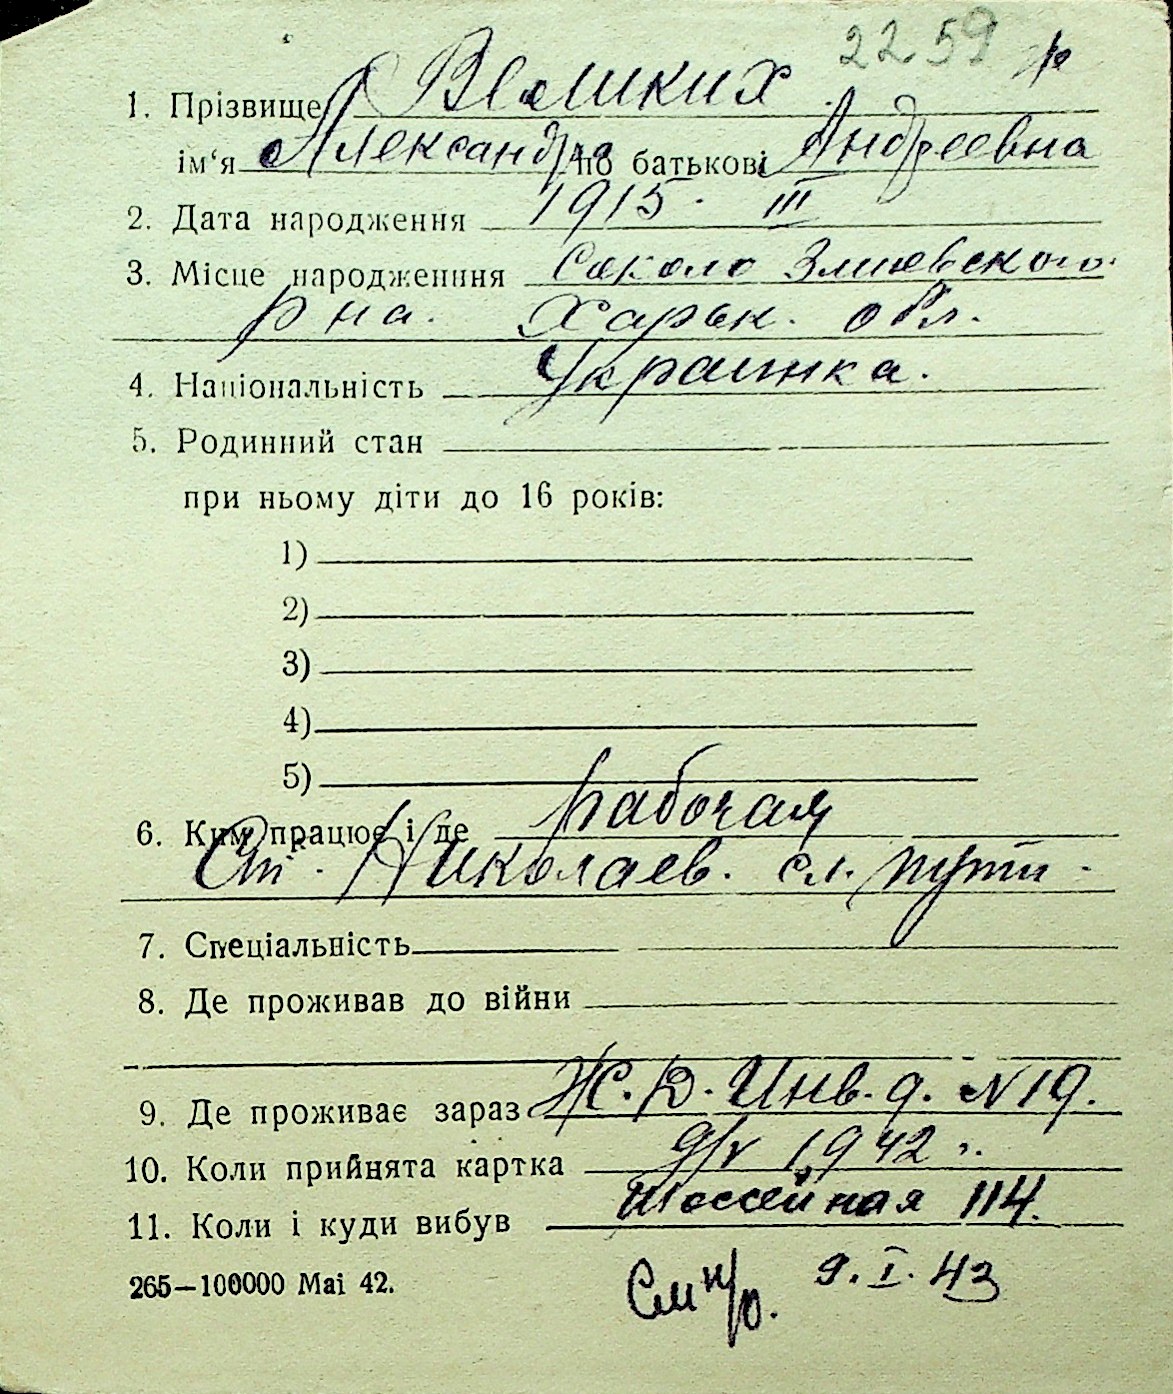 2259
1. Прізвище Великих
ім‘я Александра по батькові Андреевна
2. Дата народження 1915. III
3. Місце народженння Соколо Змиевского
р на. Харьк. обл.
4. Національність Украинка.
5. Родинний стан
при ньому діти до 16 років:
1)
2)
3)
4)
5)
6. Ким працює і де рабочая
Ст. Николаев. сл. пути.
7. Спеціальність
8. Де проживав до війни
9. Де проживає зараз Ж. Д. Инв. д. N 19.
10. Коли прийнята картка 9/V 1942 г.
11. Коли і куди вибув Шоссейная 114.
265—100000 Маі 42.
См н/о. 9. I. 43